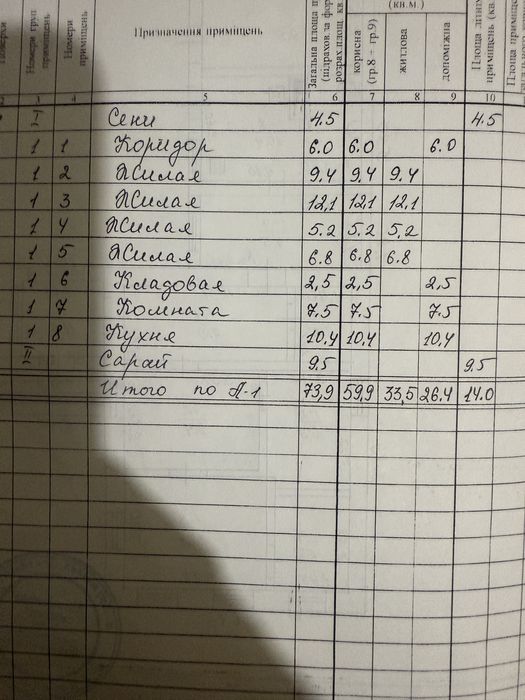 Номери груп приміщень
Номери приміщень
Призначення приміщень
Загальна площа п
(підрахов. за фор
розрах.площ кв.
(кв.м.)
корисна
(гр.8 - гр.9)
житлова
допоміжна
Площа літніх
приміщень (кв.
Площа приміще
2 3 4 5 6 7 8 9 10
I Сени 4.5 4.5
1 1 Коридор 6.0 6.0 6.0
1 2 Жилая 9.4 9.4 9.4
1 3 Жилая 12,1 12,1 12,1
1 4 Жилая 5.2 5.2 5.2
1 5 Жилая 6.8 6.8 6.8
1 6 Кладовая 2,5 2,5 2.5
1 7 Комната 7.5 7.5 7.5
1 8 Кухня 10,4 10,4 10,4
II Сарай 9.5 9.5
Итого по А-1 73,9 59,9 33,5 26.4 14.0